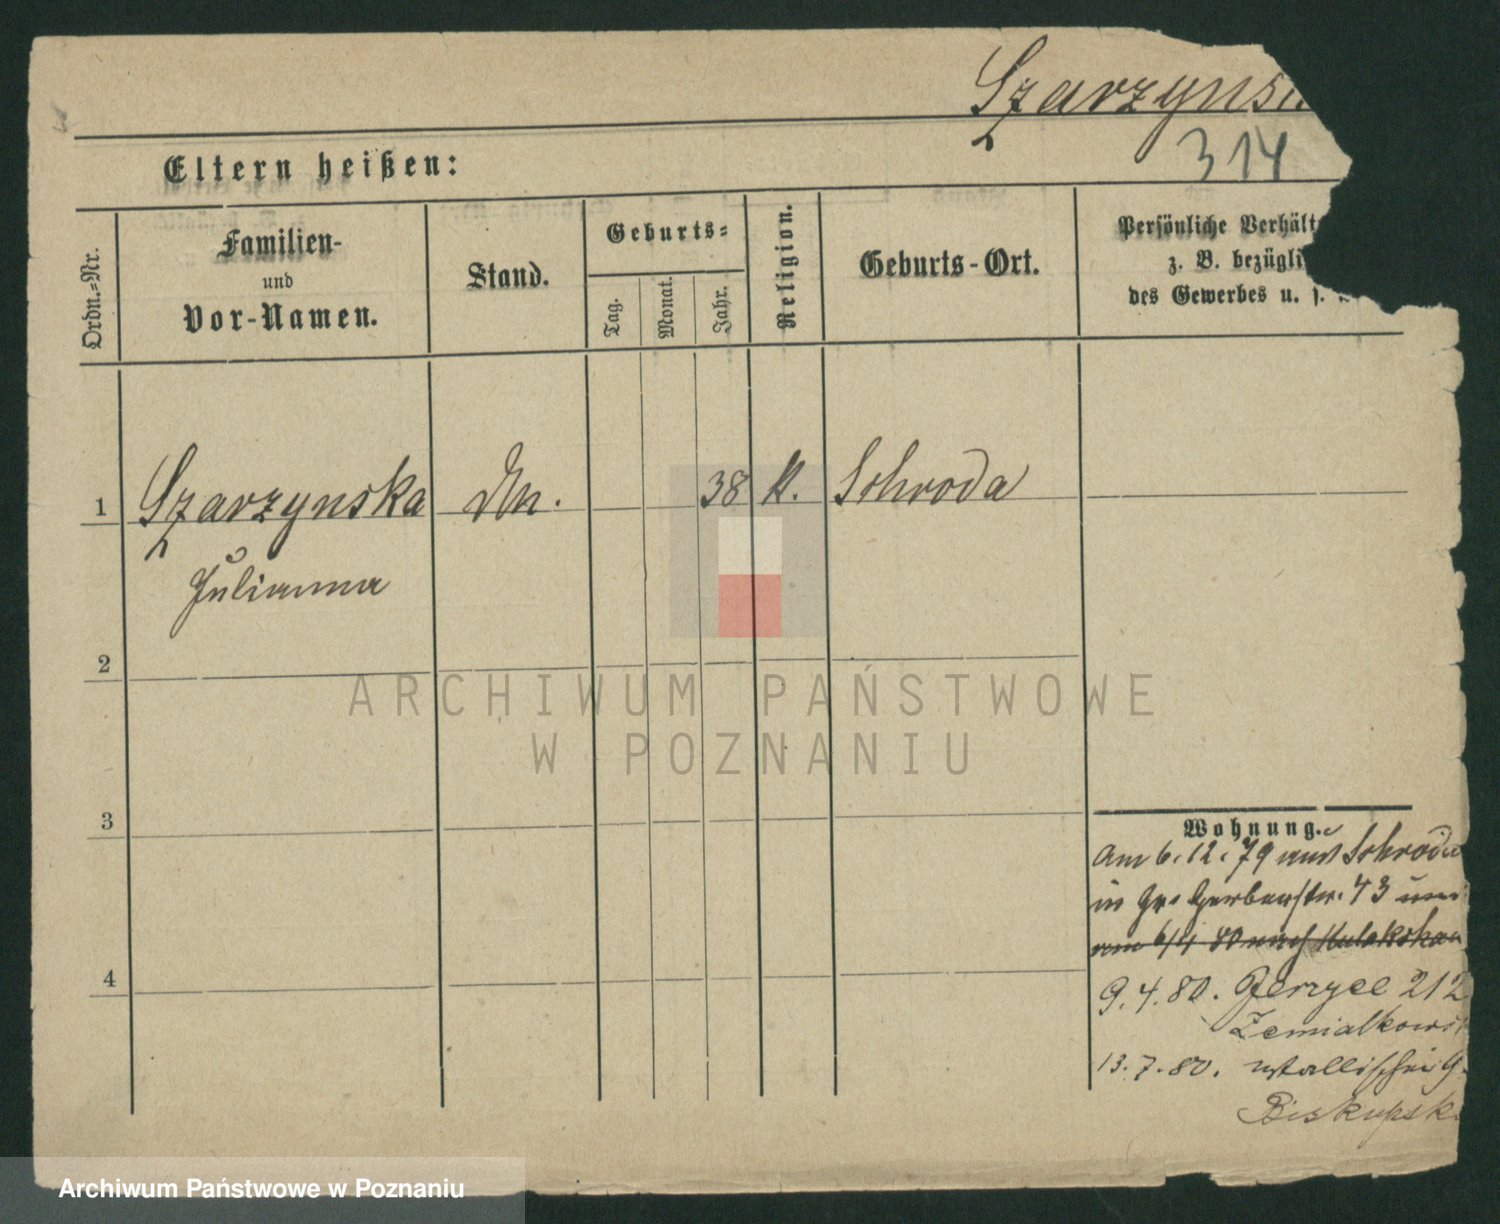 Szarzynsk
314
Eltern heißen:
Ordn.-Nr.
Familien-
und
Vor-Namen.
Stand.
Geburts-
Tag.
Monat.
Jahr.
Religion.
Geburts-Ort.
Persönliche Verhält
z. B. bezügli
des Gewerbes u. s.
1 Szarzynska Dn. 38 K. Schroda
Julianna
2
3
4
Wohnung.
Am 6.12.79 aus Schroda
in Gr. Gerberstr. 43
am 6/4 80 nach
9.4.80. Jerzyce 212
Zemialkows
13.7.80. Wallischei 9.
Biskupsk
ARCHIWUM PAŃSTWOWE
W POZNANIU
Archiwum Państwowe w Poznaniu